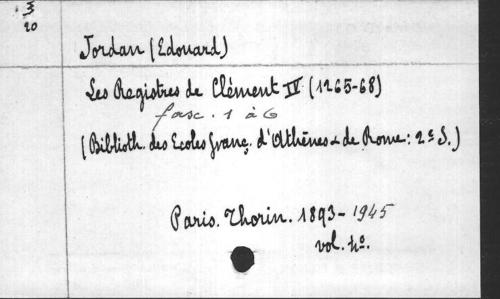 3
20
Jordan (Edouard)
Les Registres de Clément IV (1265-68)
fasc. 1 à 6
(Biblioth. des Ecoles franç. d'Athènes & de Rome: 2e S.)
Paris. Thorin. 1893-1945
vol. 4o.